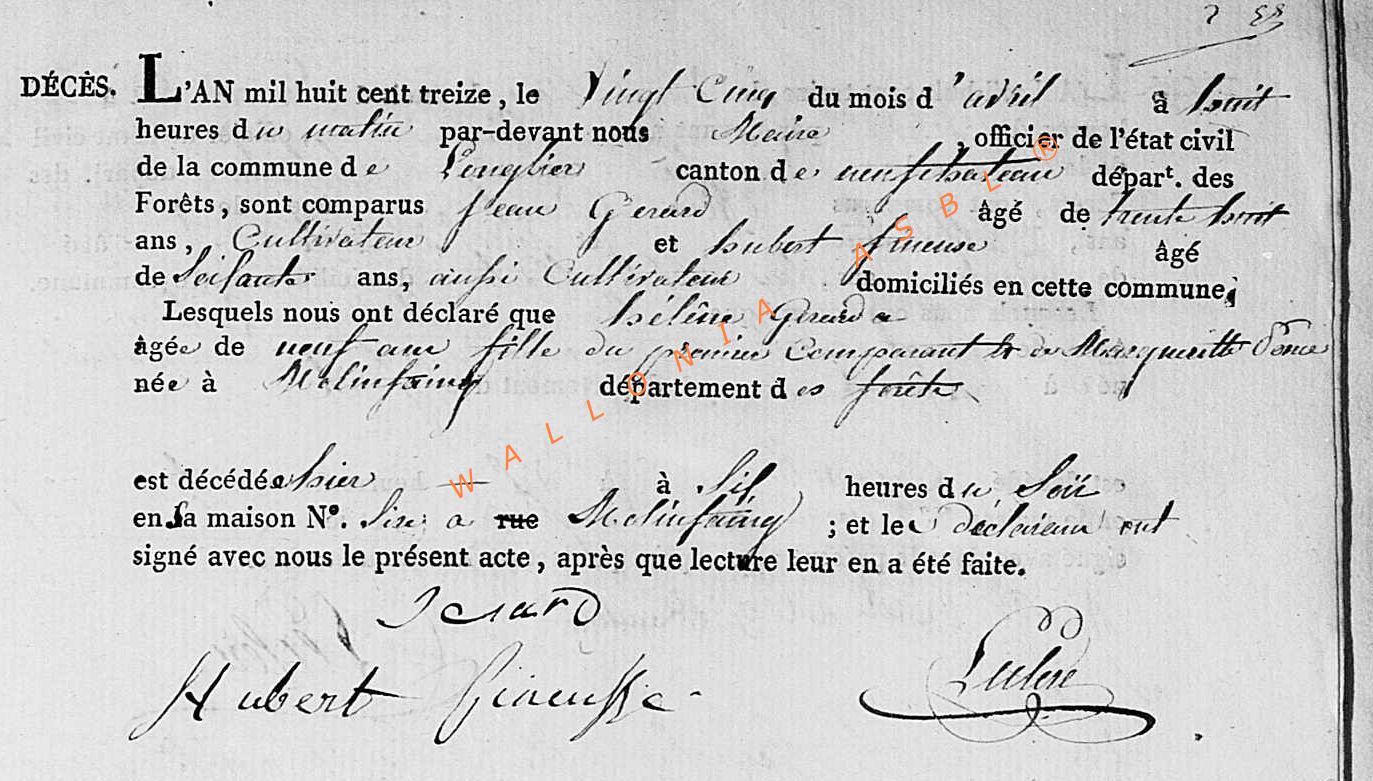 DÉCÈS. L'AN mil huit cent treize, le Vingt Cinq du mois d'avril à huit
heures du matin par-devant nous Maire, officier de l'état civil
de la commune de Longlier canton de neufchateau départ. des
Forêts, sont comparus Jean Gerard âgé de trente huit
ans, Cultivateur et hubert âgé
de Soisante ans, aussi Cultivateur domiciliés en cette commune;
Lesquels nous ont déclaré que hélêne Gerard
âgée de neuf ans fille du premier Comparant & de Marguerite
née à Molinfaing département des forêts
est décédée hier à Six heures du Soir
en sa maison N°. Sise a rue Molinfaing ; et les déclarans ont
signé avec nous le présent acte, après que lecture leur en a été faite.
Gerard
Hubert
WALLONIA ASBL ®